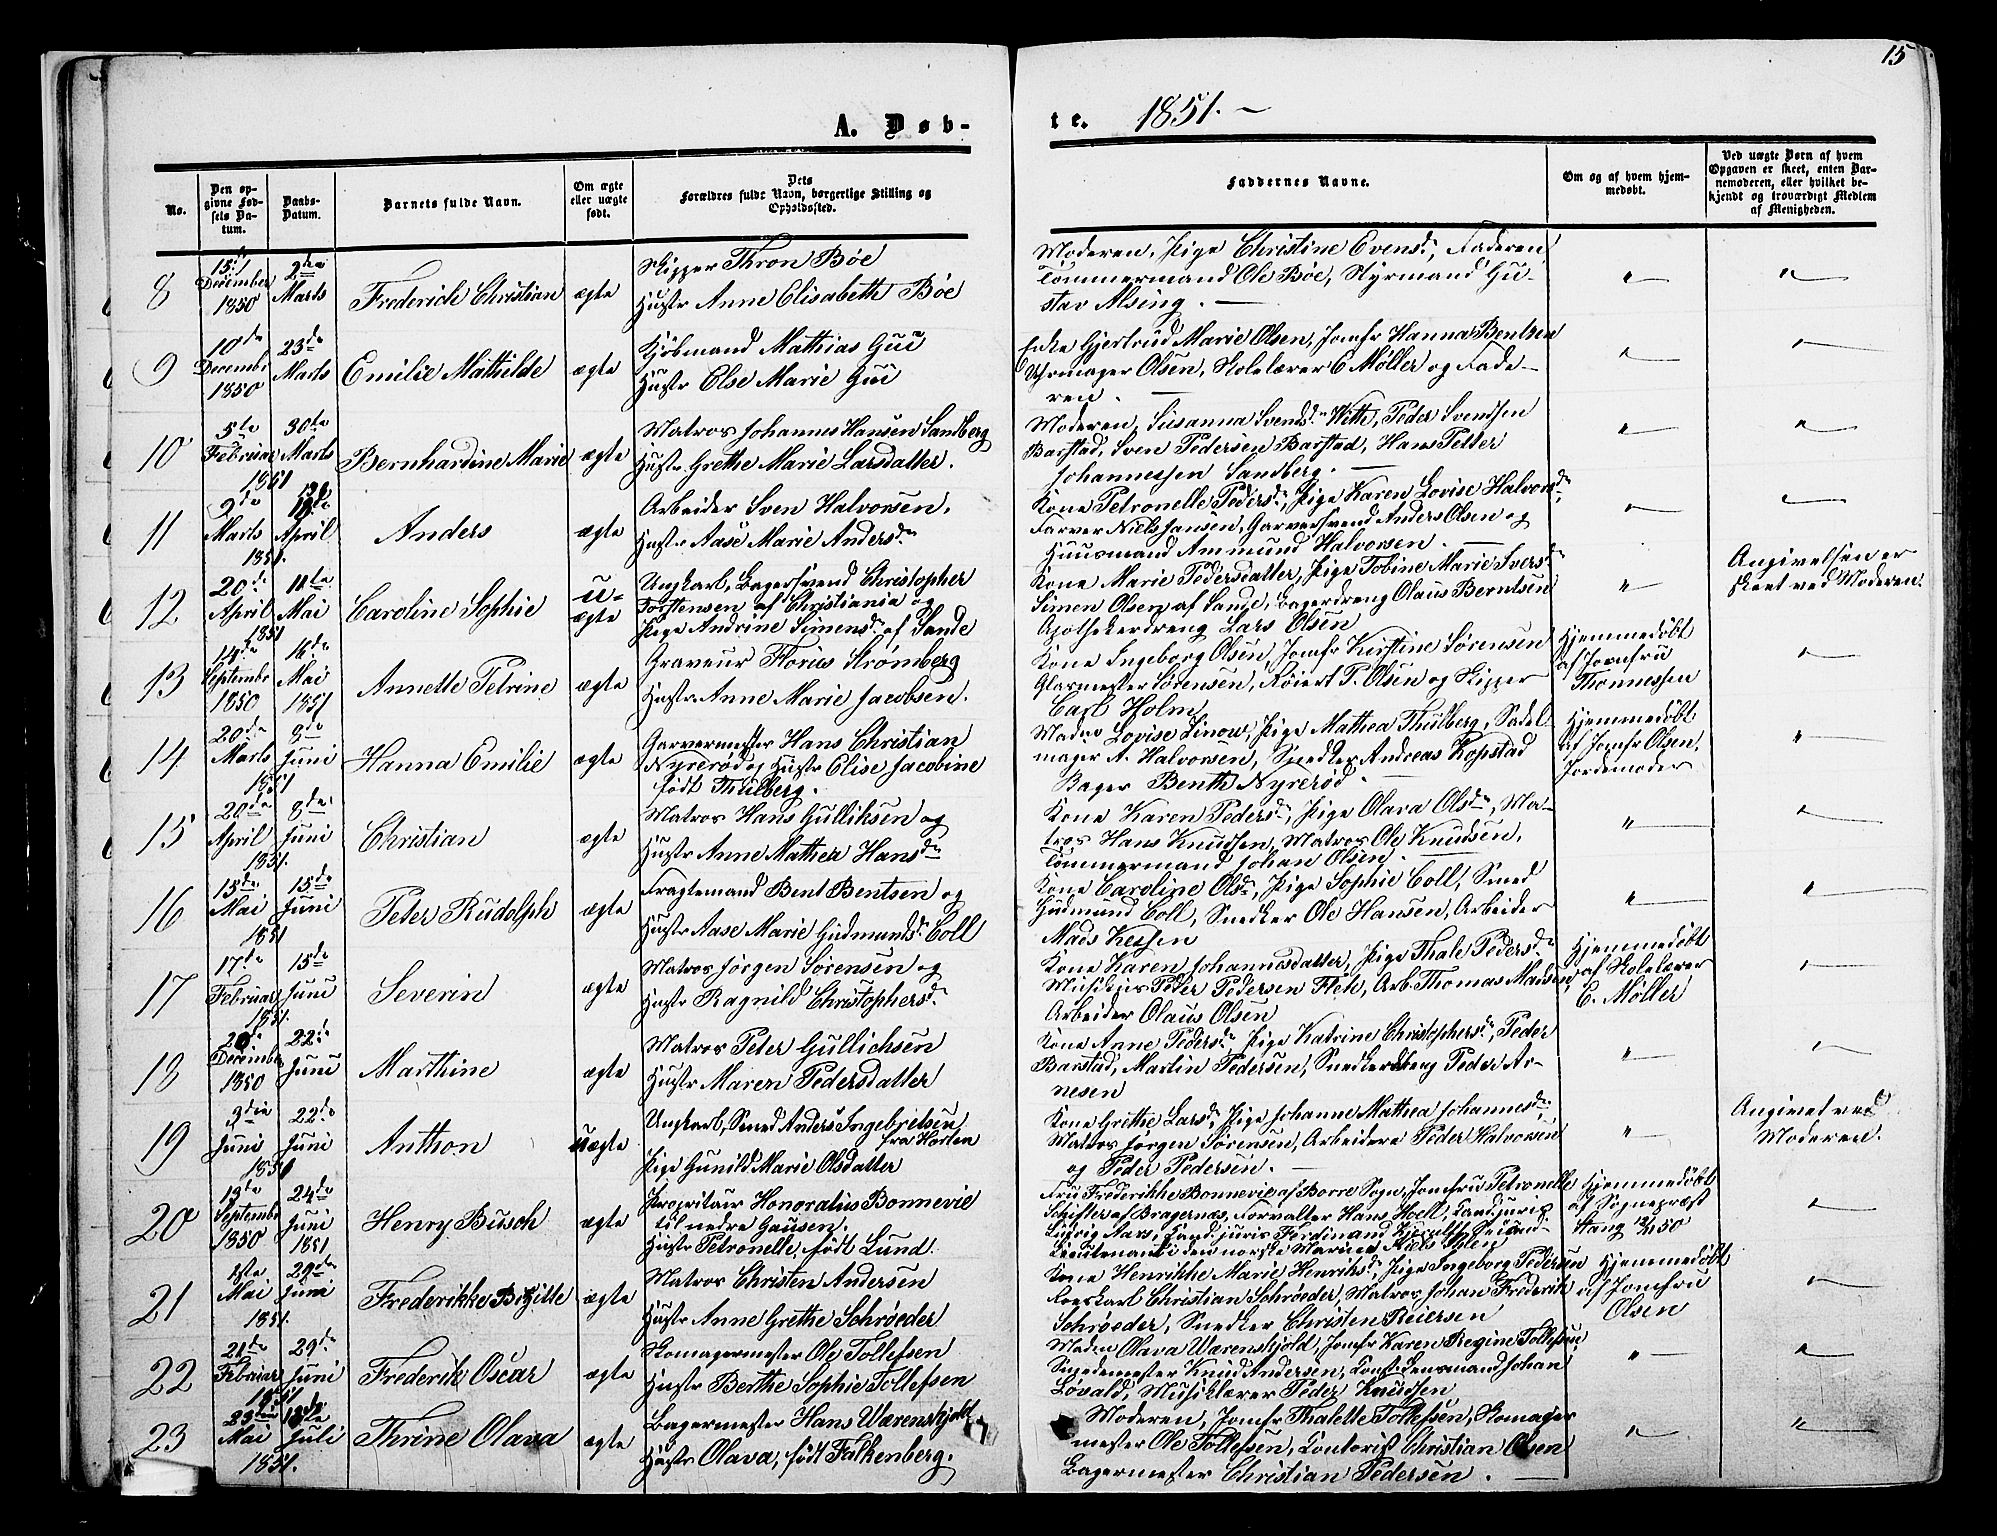 15
A. Døb-
te. 1851. ~
No.
Den op-
givne Fød-
sels Da-
tum.
Daabs-
Datum.
Barnets fulde Navn.
Om ægte
eller uægte
født.
Dets
Forældres fulde Navn, borgerlige Stilling og
Opholdssted.
Faddernes Navne.
Om og af hvem hjem-
medøbt.
Ved uægte Børn af hvem
Opgaven er skeet, enten Bar-
nemoderen, eller hvilket be-
kjendt og troværdigt Medlem
af Menigheden.
8
December
1850
2den
Marts
Frederick Christian
ægte
Skipper Thron Bøe
Hustr Anne Elisabeth Bøe
Moderen, Pige Christine Evensdr, Faderen,
Tømmermand Ole Bøe, Styrmand Gu-
stav Alsing. —
"
"
9
10de
December
1850
23de
Marts
Emilie Mathilde
ægte
Kjøbmand Mathias Gui
Hustr Else Marie Gui
Enke Gjertrud Marie Olsen, Jomfr Hanna Bentzen
Uhrmager Olsen, Skolelærer C Møller og Fade-
ren. —
"
"
10
5te
Februar
1851
30te
Marts
Bernhardine Marie
ægte
Matros Johannes Hansen Sandberg
Hustr Grethe Marie Larsdatter.
Moderen, Susanna Svendsdr Weth, Peder Svendsen
Barstad, Sven Pedersen Barstad, Hans Petter
Johannessen Sandberg. —
"
"
11
9de
Marts
1851.
April
Anders
ægte
Arbeider Sven Halvorsen,
Hustr Aase Marie Andersdr
Kone Petronelle Pedersdr, Pige Karen Lovise Halvorsdr,
Farver Niels Jansen, Garversvend Anders Olsen og
Huusmand Ammund Halvorsen. —
"
"
12
20de
April
1851
11te
Mai
Caroline Sophie
u-
ægte
Ungkarl, Bagersvend Christopher
Torstensen af Christiania og
Pige Andrine Simensdr af Sande
Kone Marie Pedersdatter, Pige Tobine Marie Iversdr
Simen Olsen af Sande, Bagerdreng Olaus Berntsen
Apothekerdreng Lars Olsen
"
Angivelsen er
skeet ved Moderen.
13
14de
Septembr
1850
16de
Mai
1851
Annette Petrine
ægte
Graveur Florius Strømberg
Hustr Anne Marie Jacobsen.
Kone Ingeborg Olsen, Jomfr Kirstine Sørensen
Glarmester Sørensen, Røiert P. Olsen og Skipper
Carl Holm
Hjemmedøbt
af Jomfru
Thonnessen
"
14
20de
Marts
1851
8de
Juni
Hanna Emilie
ægte
Garvermester Hans Christian
Nyrerød og Hustr Elise Jacobine
født Thulberg.
Madm Lovise Linow, Pige Mathea Thulberg, Sadel
mager A. Halvorsen, Snedker Andreas Kopstad
Bager Benth Nyrerød. —
Hjemmedøbt
af Jomfr Olsen,
Jordemoder
"
15
20de
April
1851.
8de
Juni
Christian
ægte
Matros Hans Gulliksen og
Hustr Anne Mathea Hansdr
Kone Karen Pedersdr, Pige Olava Olsdr, Ma-
tros Hans Knudsen, Matros Ole Knudsen,
Tømmermand Johan Olsen. —
"
"
16
15de
Mai
1851
15de
Juni
Peter Rudolph
ægte
Fragtemand Bent Bentsen og
Hustr Aase Marie Gudmundsdr Coll
Kone Caroline Olsdr, Pige Sophie Coll, Smed
Gudmund Coll, Snedker Ole Hansen, Arbeider
Mads
"
"
17
17de
Februar
1851.
15de
Juni
Severin
ægte
Matros Jørgen Sørensen og
Hustr Ragnild Christophersdr
Kone Karen Johannesdatter, Pige Thale Pedersdr
Peder Pedersen Arb. Thomas Madsen,
Arbeider Olaus Olsen
Hjemmedøbt
af Skolelærer
C. Møller
"
18
December
1850
22de
Juni
Marthine
ægte
Matros Peter Gullichsen
Hustr Maren Pedersdatter
Kone Anne Pedersdr, Pige Katrine Christophersdr, Peder
Barstad, Martin Pedersen, Snedkerdreng Peder Ar-
nesen
"
"
19
Juni
1851
22de
Juni
Anthon
uægte
Ungkarl, Smed Anders Ingebretsen
fra Horten
Pige Gunild Marie Olsdatter
Kone Grethe Larsdr, Pige Johanne Mathea Johannesdr,
Matros Jørgen Sørensen, Arbeidere Peder Halvorsen
og Peder Pedersen. —
"
Angivet ved
Moderen.
20
13de
Septembr
1850
24de
Juni
1851
Henry Busch
ægte
Propritair Honoratus Bonnevie
til nedre Gausen.
Hustr Petronelle, født Lund.
Fru Frederikke Bonnevie af Borre Sogn, Jomfru Petronelle
Schifter af Bragernæs, Forvalter Hans Hoell, Cand juris
Ludvig Aars, Cand. juris Ferdinand
Lieutenant i den norske Marine Niels Ihlen
Hjemmedøbt
af Sognepræst
Stang 12/11 50
"
21
1ste
Mai
1851.
29de
Juni
Frederikke Birgitte
ægte
Matros Christen Andersen
Hustr Anne Grethe Schrøeder
Kone Henrikke Marie Henriksdr, Pige Ingeborg Pedersen
Christian Schrøeder, Matros Johan Frederik
Schrøeder, Snedker Christen Reiersen
Hjemmedøbt
af Jomfru
Olsen
"
22
21de
Februar
1851
29de
Juni
Frederik Oscar
ægte
Skomagermester Ole Tollefsen
Hustr Berthe Sophie Tollefsen
Madm Olava Warenskjold, Jomfr Karen Regine Tollefsen,
Smedemester Knud Andersen, Const. Lensmand Johan
Løvald, Musiklærer Peder Knudsen
"
"
23
Mai
1851.
Juli
Thrine Olava
ægte
Bagermester Hans Warenskjold
Hustr Olava, født Falkenberg.
Moderen, Jomfr Thalette Tollefsen, Skomager
mester Ole Tollefsen, Contorist Christian Olsen
Bagermester Christian Pedersen. —
"
"